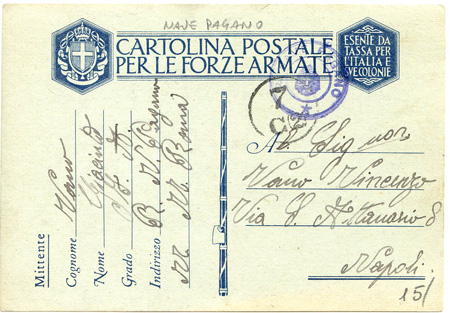 NAVE PAGANO
CARTOLINA POSTALE
PER LE FORZE ARMATE
ESENTE DA
TASSA PER
L'ITALIA E
SVE COLONIE
7
C
Al Signor
Vano Vincenzo
Via S. Attanasio 8
Napoli
15/
Mittente
Cognome Vano
Nome
Grado
Indirizzo R. N. Pagano
M. Roma